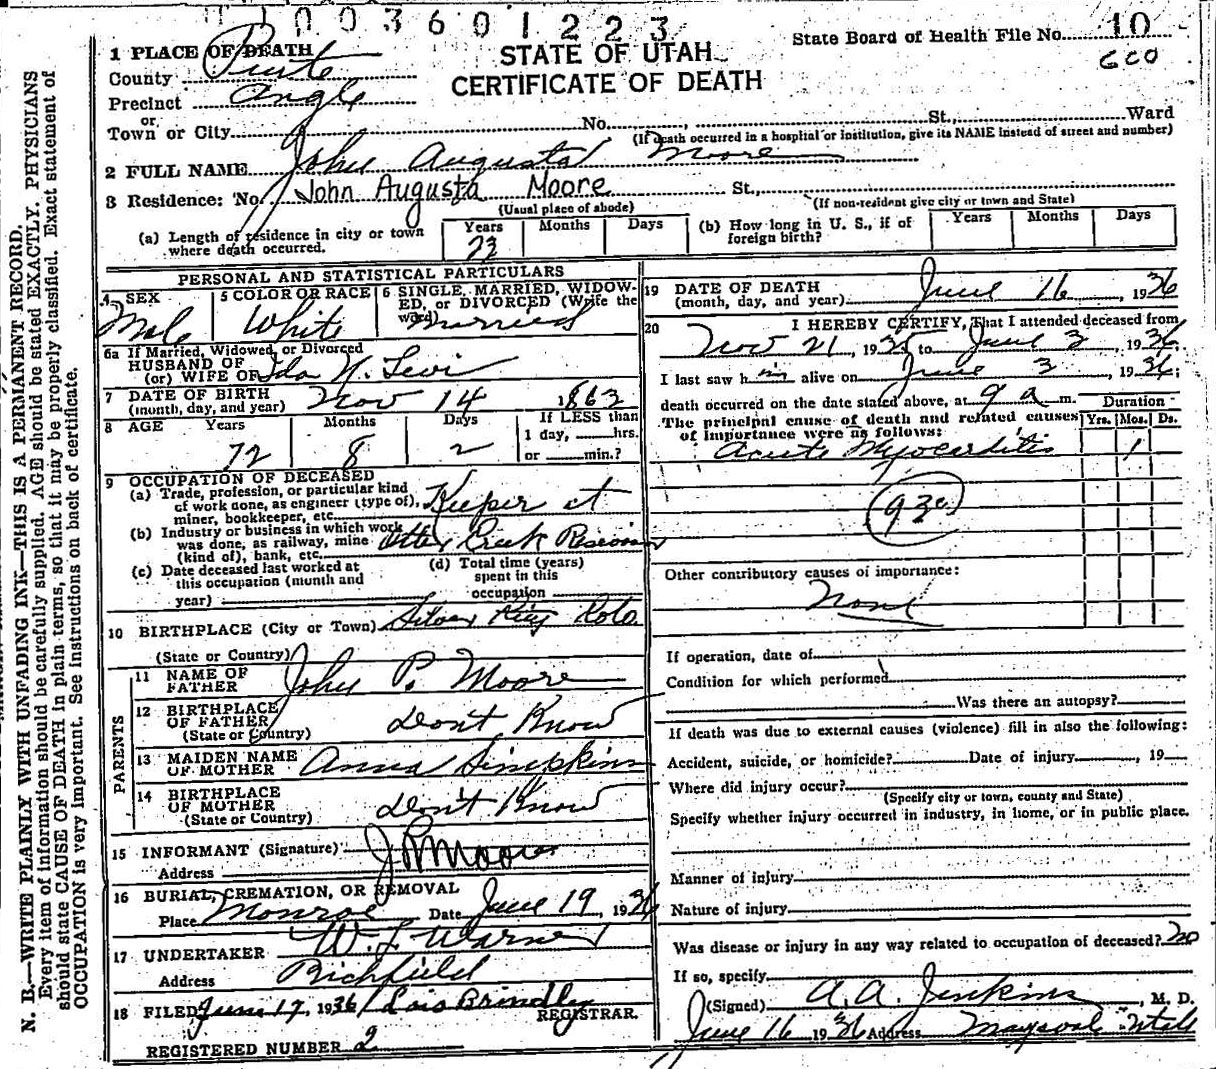 01003601223
State Board of Health File No. 10
600
STATE OF UTAH
CERTIFICATE OF DEATH
1 PLACE OF DEATH
County Piute
Precinct Angle
or
Town or City No. St., Ward
(If death occurred in a hospital or institution, give its NAME instead of street and number)
2 FULL NAME John Augusta Moore
3 Residence: No. John Augusta Moore St.,
(Usual place of abode) (If non-resident give city or town and State)
(a) Length of residence in city or town where death occurred. Years 23 Months Days
(b) How long in U. S., if of foreign birth? Years Months Days
PERSONAL AND STATISTICAL PARTICULARS
4 SEX Male
5 COLOR OR RACE White
6 SINGLE, MARRIED, WIDOWED, or DIVORCED (Write the word) Married
6a If Married, Widowed, or Divorced
HUSBAND OF
(or) WIFE OF Ida N. Levi
7 DATE OF BIRTH
(month, day, and year) Nov 14 1863
8 AGE Years 72 Months 8 Days 2
If LESS than
1 day, hrs.
or min.?
9 OCCUPATION OF DECEASED
(a) Trade, profession, or particular kind of work done, as engineer (type of), miner, bookkeeper, etc. Keeper at
(b) Industry or business in which work was done, as railway, mine (kind of), bank, etc. Otter Creek Reservoir
(c) Date deceased last worked at this occupation (month and year)
(d) Total time (years) spent in this occupation
10 BIRTHPLACE (City or Town) Silver King Colo
(State or Country)
PARENTS
11 NAME OF FATHER John P. Moore
12 BIRTHPLACE OF FATHER
(State or Country) Don't Know
13 MAIDEN NAME OF MOTHER Anna Simpkins
14 BIRTHPLACE OF MOTHER
(State or Country) Don't Know
15 INFORMANT (Signature) J P Moore
Address
16 BURIAL, CREMATION, OR REMOVAL
Place Monroe Date June 19, 1936
17 UNDERTAKER W. L. Warner
Address Richfield
18 FILED June 17, 1936 Lois Brindley
REGISTRAR.
REGISTERED NUMBER 2
19 DATE OF DEATH
(month, day, and year) June 16, 1936
20 I HEREBY CERTIFY, That I attended deceased from
Nov 21, 1935 to June 3, 1936
I last saw h im alive on June 3, 1936;
death occurred on the date stated above, at 9 a m.
Duration
The principal cause of death and related causes of importance were as follows: Yrs. Mos. Ds.
Acute Myocarditis 1
930
Other contributory causes of importance:
None
If operation, date of
Condition for which performed
Was there an autopsy?
If death was due to external causes (violence) fill in also the following:
Accident, suicide, or homicide? Date of injury, 19
Where did injury occur?
(Specify city or town, county and State)
Specify whether injury occurred in industry, in home, or in public place.
Manner of injury
Nature of injury
Was disease or injury in any way related to occupation of deceased? no
If so, specify
(Signed) A. A. Jenkins, M. D.
June 16 1936 Address Marysvale Utah
N. B.—WRITE PLAINLY WITH UNFADING INK—THIS IS A PERMANENT RECORD.
Every item of information should be carefully supplied. AGE should be stated EXACTLY. PHYSICIANS
should state CAUSE OF DEATH in plain terms, so that it may be properly classified. Exact statement of
OCCUPATION is very important. See instructions on back of certificate.